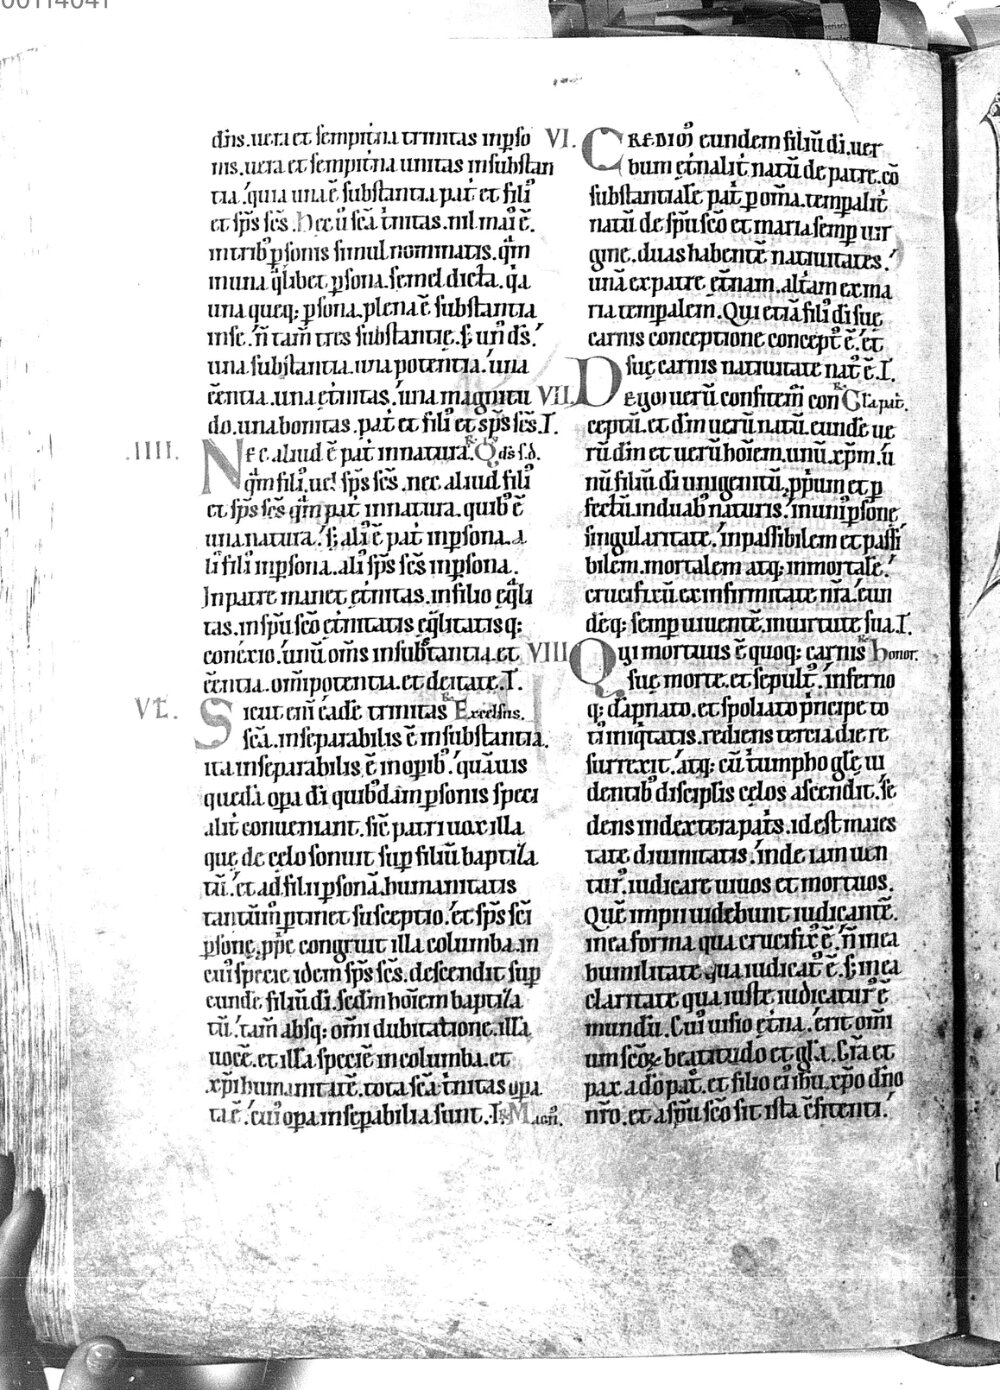 00114041
dñs. uera et sempit̾na trinitas inp̱so
nis. uera et sempit̾na unitas insubstan
tia. quia una ē substantia pat̾ et filii
et sp̄s sc̄s. Hec ū sc̄a t̾nitas. nil mai᷒ ē.
intrib᷒ p̱sonis simul nominatis. qͣm
inuna qͣlibet p̱sona. semel dicta. qͣa
una queq; p̱sona. plena ē substantia
inse. ñ tam̄ tres substantie. sꝫ un᷒ ds̄.
una substantia. una potentia. una
ēentia. una et̾nitas. una magnitu
do. una bonitas. pat̾ et filii et sp̄s sc̄s. T.
.IIII. Nec aliud ē pat̾ innatura. R. Qs d̄s. s. d.
qͣm fili᷒. uel sp̄s sc̄s. nec aliud fili᷒
et sp̄s sc̄s qͣm pat̾ innatura. quib᷒ ē
una natura. sꝫ ali᷒ ē pat̾ inp̱sona. a
li᷒ fili᷒ inp̱sona. ali᷒ sp̄s sc̄s inp̱sona.
Inpatre manet et̾nitas. infilio eqͣli
tas. insp̄u sc̄o et̾nitatis eqͣlitatisq;
conexio. unū om̄s insubstantia. et
ēentia. om̄ipotentia. et deitate. T.
V. T. Sicut eni᷒ eadē trinitas R. Excelsus.
sc̄a. inseparabilis ē insubstantia.
ita inseparabilis ē inopib᷒. quāuis
quedā opa di᷒ quibdam p̱sonis speci
alit̾ conueniant. sic̄ patri uox illa
quę de celo sonuit sup̱ filiū baptiza
tū. et ad filii p̱sonā. humanitatis
tantūm᷒ p̱tinet susceptio. et sp̄s sc̄i
p̱sonę. ppͥe congruit illa columba. in
cui᷒ specie idem sp̄s sc̄s. descendit sup̱
eundē filiū di᷒. sc̄dm hoīem baptiza
tū. tam̄ absq; om̄i dubitatione. illā
uocē. et illā speciē incolumba. et
xp̄i humanitatē. tota sc̄a t̾nitas opa
ta ē. cui᷒ opa insep̱abilia sunt. T. R. Magn̄.
VI. CREDIM᷒ eundem filiū di᷒. uer
bum et̾nalit̾ natū de patre. cō
substantialē pat̾ p̱ om̄a. temp̱alit̾
natū de sp̄u sc̄o et maria semp̱ uir
gine. duas habentē natiuitates.
unā ex patre et̾nam. alt̾am ex ma
ria temp̱alem. Qui etiā fili᷒ di᷒ suę
carnis conceptione concept᷒ ē. et
suę carnis natiuitate nat᷒ ē. T.
VII. Deyoi uerū confitem᷒ con R. Gl̄a pat̾.
ceptū. et dm̄ uerū natū. eundē ue
rū dm̄ et uerū hoīem. unū xp̄m. ū
nū filiū di᷒ unigenitū. ppͥum et p̱
fectū. induab᷒ naturis. inuni᷒ p̱sone
singularitate. inpassibilem et passi
bilem. mortalem atq; inmortalē.
crucifixū ex infirmitate nr̄a. eun
dēq; semp̱ uiuentē. inuirtute sua. T.
VIII. Qui mortuus ē quoq; carnis R. honor.
suę morte. et sepult᷒. inferno
q; dāpnato. et spoliato p̾ncipe to
ti᷒ iniqͥtatis. rediens tercia die re
surrexit. atq; cū t̾umpho gl̄e ui
dentib᷒ discip̱lis celos ascendit. se
dens indextera pat̾s. id est maies
tate diuinitatis. inde iam uen
tur᷒. iudicare uiuos et mortuos.
Quē impii uidebunt iudicantē.
inea forma qua crucifix᷒ ē. ñ inea
humilitate qua iudicat᷒ ē. sꝫ inea
claritate qua iuste iudicatur᷒ ē
mundū. Cui᷒ uisio et̾na. erit om̄i
um sc̄oꝝ beatitudo et gl̄a. Gr̄a et
pax a dō pat̾. et filio ei᷒ ihu. xp̄o dn̄o
nr̄o. et a sp̄u sc̄o sit ista c̄fitenti.